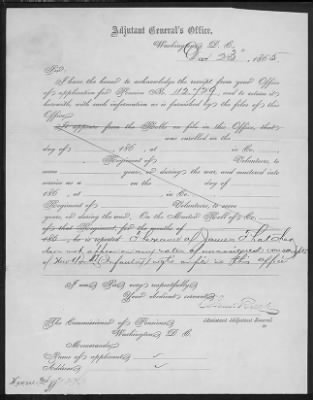 Adjutant General's Office,
Washington, D. C.
23d, 1865
Sir:
I have the honor to acknowledge the receipt from your Office
of application for Pension No. 112.729, and to return it
herewith, with such information as is furnished by the files of this
Office.
It appears from the Rolls on file in this Office, that
was enrolled on the
day of , 186 , at , in Co.
Regiment of Volunteers, to
serve years, or during the war, and mustered into
service as a on the day of
, 186 , at , in Co.
Regiment of Volunteers, to serve
years, or during the war. On the Muster Roll of Co.
of that Regiment, for the months of
186 , he is reported The name of James
does not appear on any rolls of
Infantry on file in this office
I am, Sir, very respectfully,
Your obedient servant,
Assistant Adjutant General.
The Commissioner of Pensions,
Washington, D. C.
Memoranda:
Name of applicant,
Address,